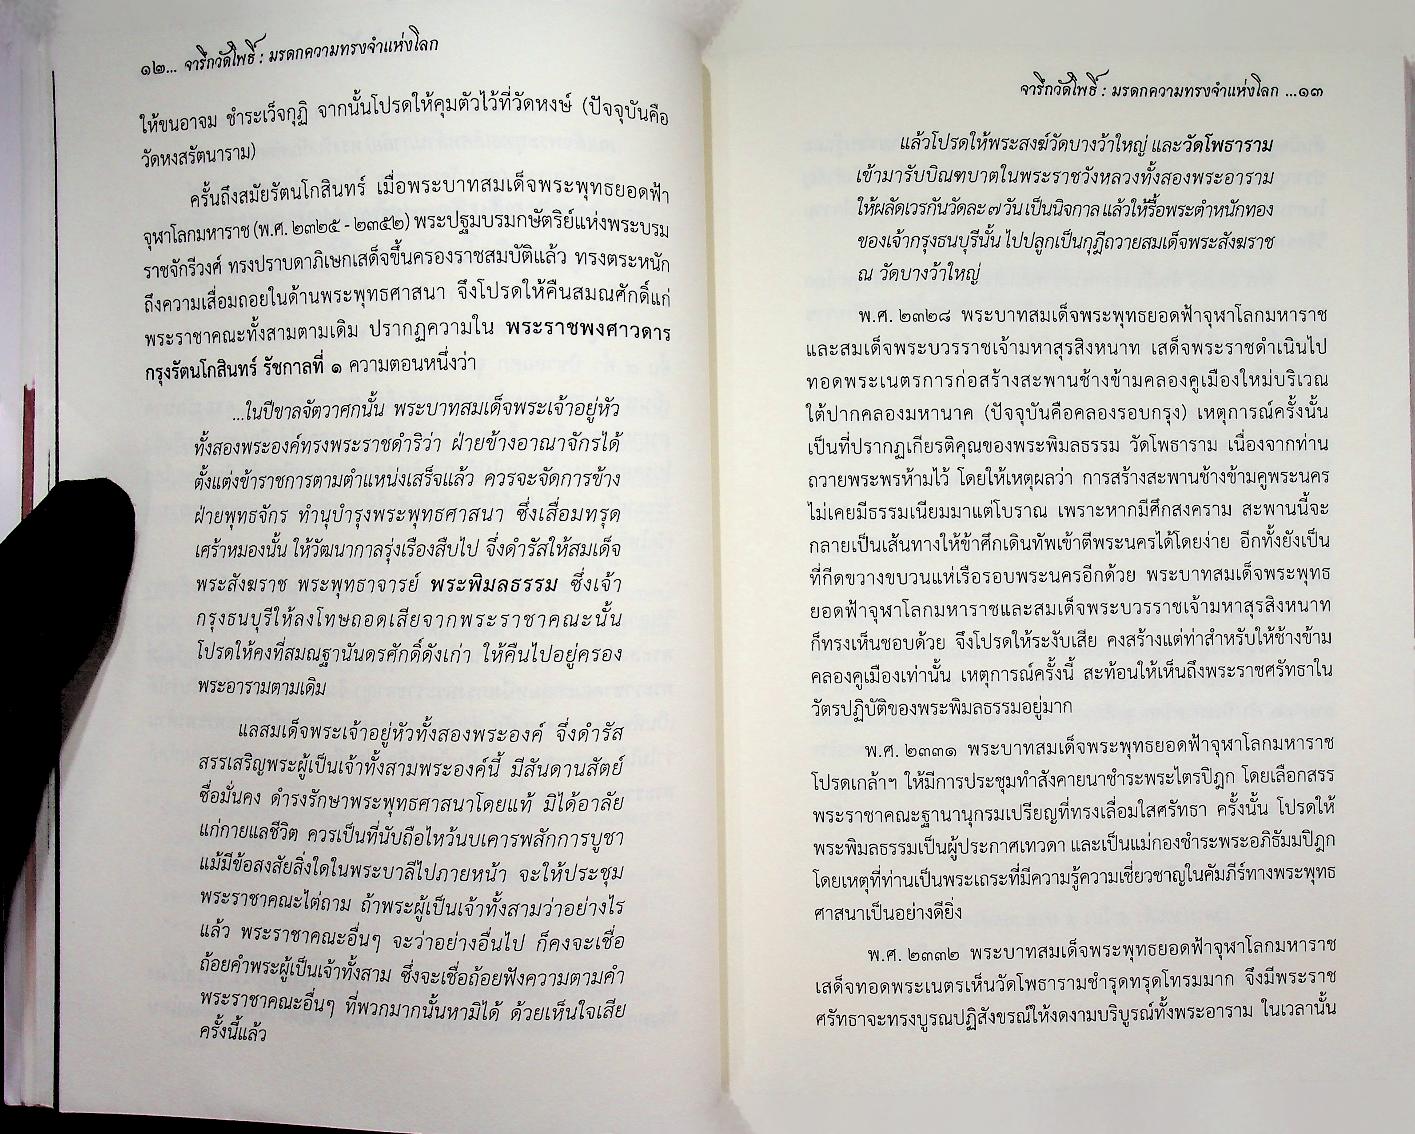 ๑๒... จารึกวัดโพธิ์ : มรดกความทรงจำแห่งโลก
ให้ขนอาจม ชำระเว็จกุฏิ จากนั้นโปรดให้คุมตัวไว้ที่วัดหงษ์ (ปัจจุบันคือ
วัดหงสรัตนาราม)
ครั้นถึงสมัยรัตนโกสินทร์ เมื่อพระบาทสมเด็จพระพุทธยอดฟ้า
จุฬาโลกมหาราช (พ.ศ. ๒๓๒๕ - ๒๓๕๒) พระปฐมบรมกษัตริย์แห่งพระบรม
ราชจักรีวงศ์ ทรงปราบดาภิเษกเสด็จขึ้นครองราชสมบัติแล้ว ทรงตระหนัก
ถึงความเสื่อมถอยในด้านพระพุทธศาสนา จึงโปรดให้คืนสมณศักดิ์แก่
พระราชาคณะทั้งสามตามเดิม ปรากฏความใน พระราชพงศาวดาร
กรุงรัตนโกสินทร์ รัชกาลที่ ๑ ความตอนหนึ่งว่า
...ในปีขาลจัตวาศกนั้น พระบาทสมเด็จพระเจ้าอยู่หัว
ทั้งสองพระองค์ทรงพระราชดำริว่า ฝ่ายข้างอาณาจักรได้
ตั้งแต่งข้าราชการตามตำแหน่งเสร็จแล้ว ควรจะจัดการข้าง
ฝ่ายพุทธจักร ทำนุบำรุงพระพุทธศาสนา ซึ่งเสื่อมทรุด
เศร้าหมองนั้น ให้วัฒนากาลรุ่งเรืองสืบไป จึ่งดำรัสให้สมเด็จ
พระสังฆราช พระพุทธาจารย์ พระพิมลธรรม ซึ่งเจ้า
กรุงธนบุรีให้ลงโทษถอดเสียจากพระราชาคณะนั้น
โปรดให้คงที่สมณฐานันดรศักดิ์ดังเก่า ให้คืนไปอยู่ครอง
พระอารามตามเดิม
แลสมเด็จพระเจ้าอยู่หัวทั้งสองพระองค์ จึ่งดำรัส
สรรเสริญพระผู้เป็นเจ้าทั้งสามพระองค์นี้ มีสันดานสัตย์
ซื่อมั่นคง ดำรงรักษาพระพุทธศาสนาโดยแท้ มิได้อาลัย
แก่กายแลชีวิต ควรเป็นที่นับถือไหว้นบเคารพสักการบูชา
แม้มีข้อสงสัยสิ่งใดในพระบาลีไปภายหน้า จะให้ประชุม
พระราชาคณะไต่ถาม ถ้าพระผู้เป็นเจ้าทั้งสามว่าอย่างไร
แล้ว พระราชาคณะอื่นๆ จะว่าอย่างอื่นไป ก็คงจะเชื่อ
ถ้อยคำพระผู้เป็นเจ้าทั้งสาม ซึ่งจะเชื่อถ้อยฟังความตามคำ
พระราชาคณะอื่นๆ ที่พวกมากนั้นหามิได้ ด้วยเห็นใจเสีย
ครั้งนี้แล้ว
จารึกวัดโพธิ์ : มรดกความทรงจำแห่งโลก ...๑๓
แล้วโปรดให้พระสงฆ์วัดบางว้าใหญ่ และวัดโพธาราม
เข้ามารับบิณฑบาตในพระราชวังหลวงทั้งสองพระอาราม
ให้ผลัดเวรกันวัดละ ๗ วัน เป็นนิจกาล แล้วให้รื้อพระตำหนักทอง
ของเจ้ากรุงธนบุรีนั้น ไปปลูกเป็นกุฎีถวายสมเด็จพระสังฆราช
ณ วัดบางว้าใหญ่
พ.ศ. ๒๓๒๘ พระบาทสมเด็จพระพุทธยอดฟ้าจุฬาโลกมหาราช
และสมเด็จพระบวรราชเจ้ามหาสุรสิงหนาท เสด็จพระราชดำเนินไป
ทอดพระเนตรการก่อสร้างสะพานช้างข้ามคลองคูเมืองใหม่บริเวณ
ใต้ปากคลองมหานาค (ปัจจุบันคือคลองรอบกรุง) เหตุการณ์ครั้งนั้น
เป็นที่ปรากฏเกียรติคุณของพระพิมลธรรม วัดโพธาราม เนื่องจากท่าน
ถวายพระพรห้ามไว้ โดยให้เหตุผลว่า การสร้างสะพานช้างข้ามคูพระนคร
ไม่เคยมีธรรมเนียมมาแต่โบราณ เพราะหากมีศึกสงคราม สะพานนี้จะ
กลายเป็นเส้นทางให้ข้าศึกเดินทัพเข้าตีพระนครได้โดยง่าย อีกทั้งยังเป็น
ที่กีดขวางขบวนแห่เรือรอบพระนครอีกด้วย พระบาทสมเด็จพระพุทธ
ยอดฟ้าจุฬาโลกมหาราชและสมเด็จพระบวรราชเจ้ามหาสุรสิงหนาท
ก็ทรงเห็นชอบด้วย จึงโปรดให้ระงับเสีย คงสร้างแต่ท่าสำหรับให้ช้างข้าม
คลองคูเมืองเท่านั้น เหตุการณ์ครั้งนี้ สะท้อนให้เห็นถึงพระราชศรัทธาใน
วัตรปฏิบัติของพระพิมลธรรมอยู่มาก
พ.ศ. ๒๓๓๑ พระบาทสมเด็จพระพุทธยอดฟ้าจุฬาโลกมหาราช
โปรดเกล้าฯ ให้มีการประชุมทำสังคายนาชำระพระไตรปิฎก โดยเลือกสรร
พระราชาคณะฐานานุกรมเปรียญที่ทรงเลื่อมใสศรัทธา ครั้งนั้น โปรดให้
พระพิมลธรรมเป็นผู้ประกาศเทวดา และเป็นแม่กองชำระพระอภิธัมมปิฎก
โดยเหตุที่ท่านเป็นพระเถระที่มีความรู้ความเชี่ยวชาญในคัมภีร์ทางพระพุทธ
ศาสนาเป็นอย่างดียิ่ง
พ.ศ. ๒๓๓๒ พระบาทสมเด็จพระพุทธยอดฟ้าจุฬาโลกมหาราช
เสด็จทอดพระเนตรเห็นวัดโพธารามชำรุดทรุดโทรมมาก จึงมีพระราช
ศรัทธาจะทรงบูรณปฏิสังขรณ์ให้งดงามบริบูรณ์ทั้งพระอาราม ในเวลานั้น